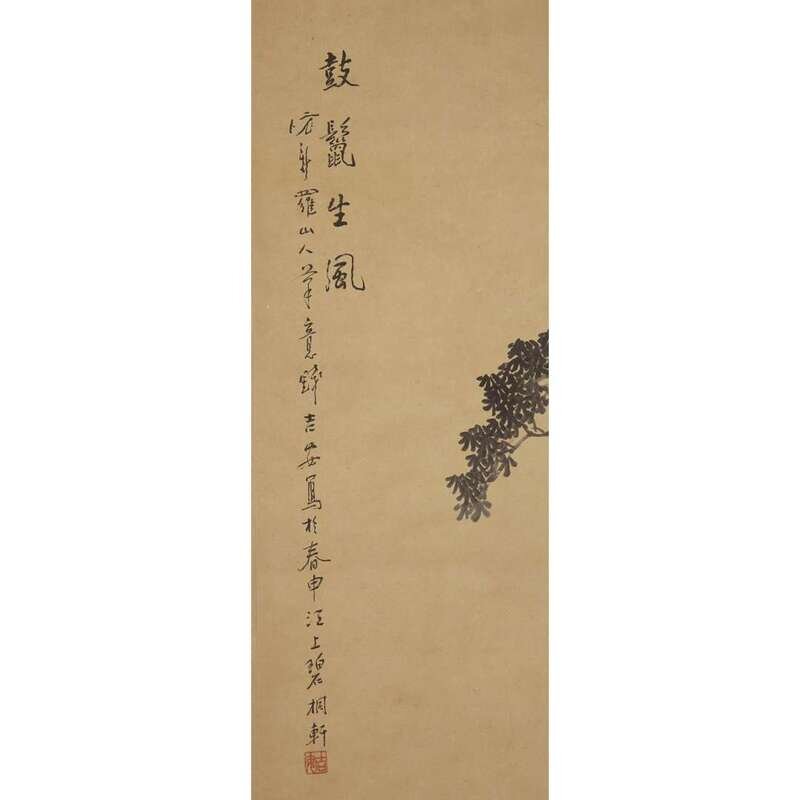 鼓鬣生風
新羅山人筆意吉寫於春申江上碧桐軒